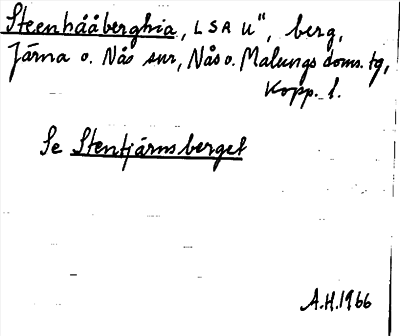 Steenhááberghia, LSA U", berg,
Järna o. Nås snr, Nås o. Malungs doms. tg,
Kopp. l.
Se Stentjärnsberget
A.H.1966